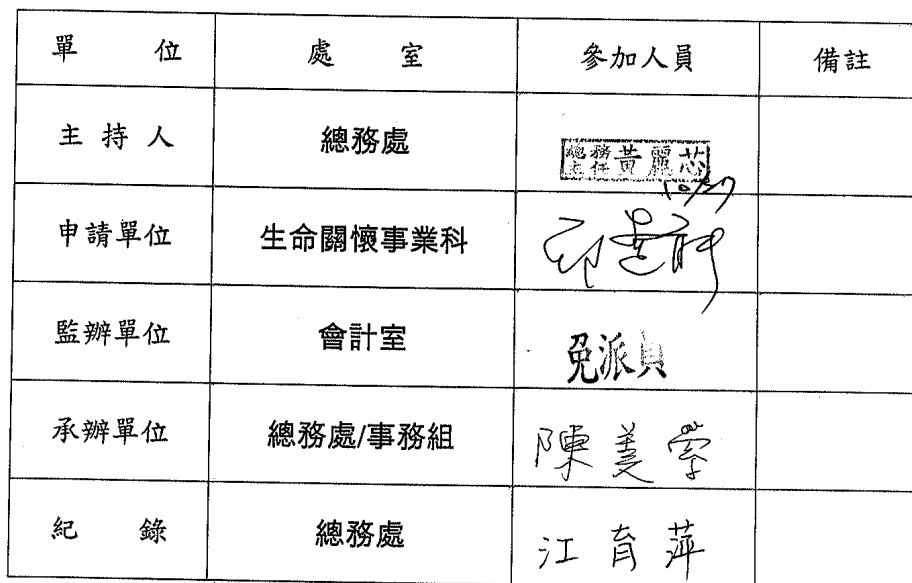 單 位 處 室 參加人員 備註
主 持 人 總務處 總務主任 黃麗芯
申請單位 生命關懷事業科
監辦單位 會計室 免派員
承辦單位 總務處/事務組 陳美
紀 錄 總務處 江育萍